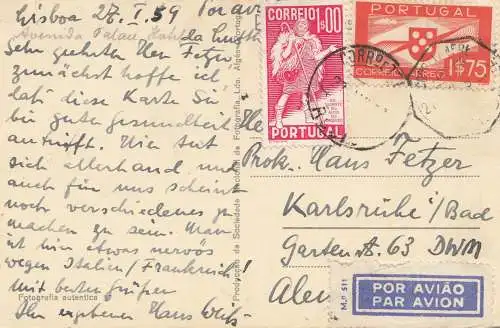 Lisboa 27. I. 39 Par avi
Avenida Palace Hotel
Sehr geehrter Herr Fetzer
zunächst hoffe ich
daß diese Karte Sie
bei guter Gesundheit
antrifft. Hier tut
sich allerhand und
auch für uns scheint
noch verschiedenes zu
machen zu sein. Man
ist hier etwas nervös
wegen Italien/Frankreich!
Mit besten Grüßen
Ihr ergebener Hans
Fotografia autentica
CORREIO 1$00
PORTUGAL
PORTUGAL
CORREIO AEREO 1$75
He
Prok. Hans Fetzer
Karlsruhe/Bad
Gartenstr. 63 DWM
Alem
Mod. 511
POR AVIÃO
PAR AVION